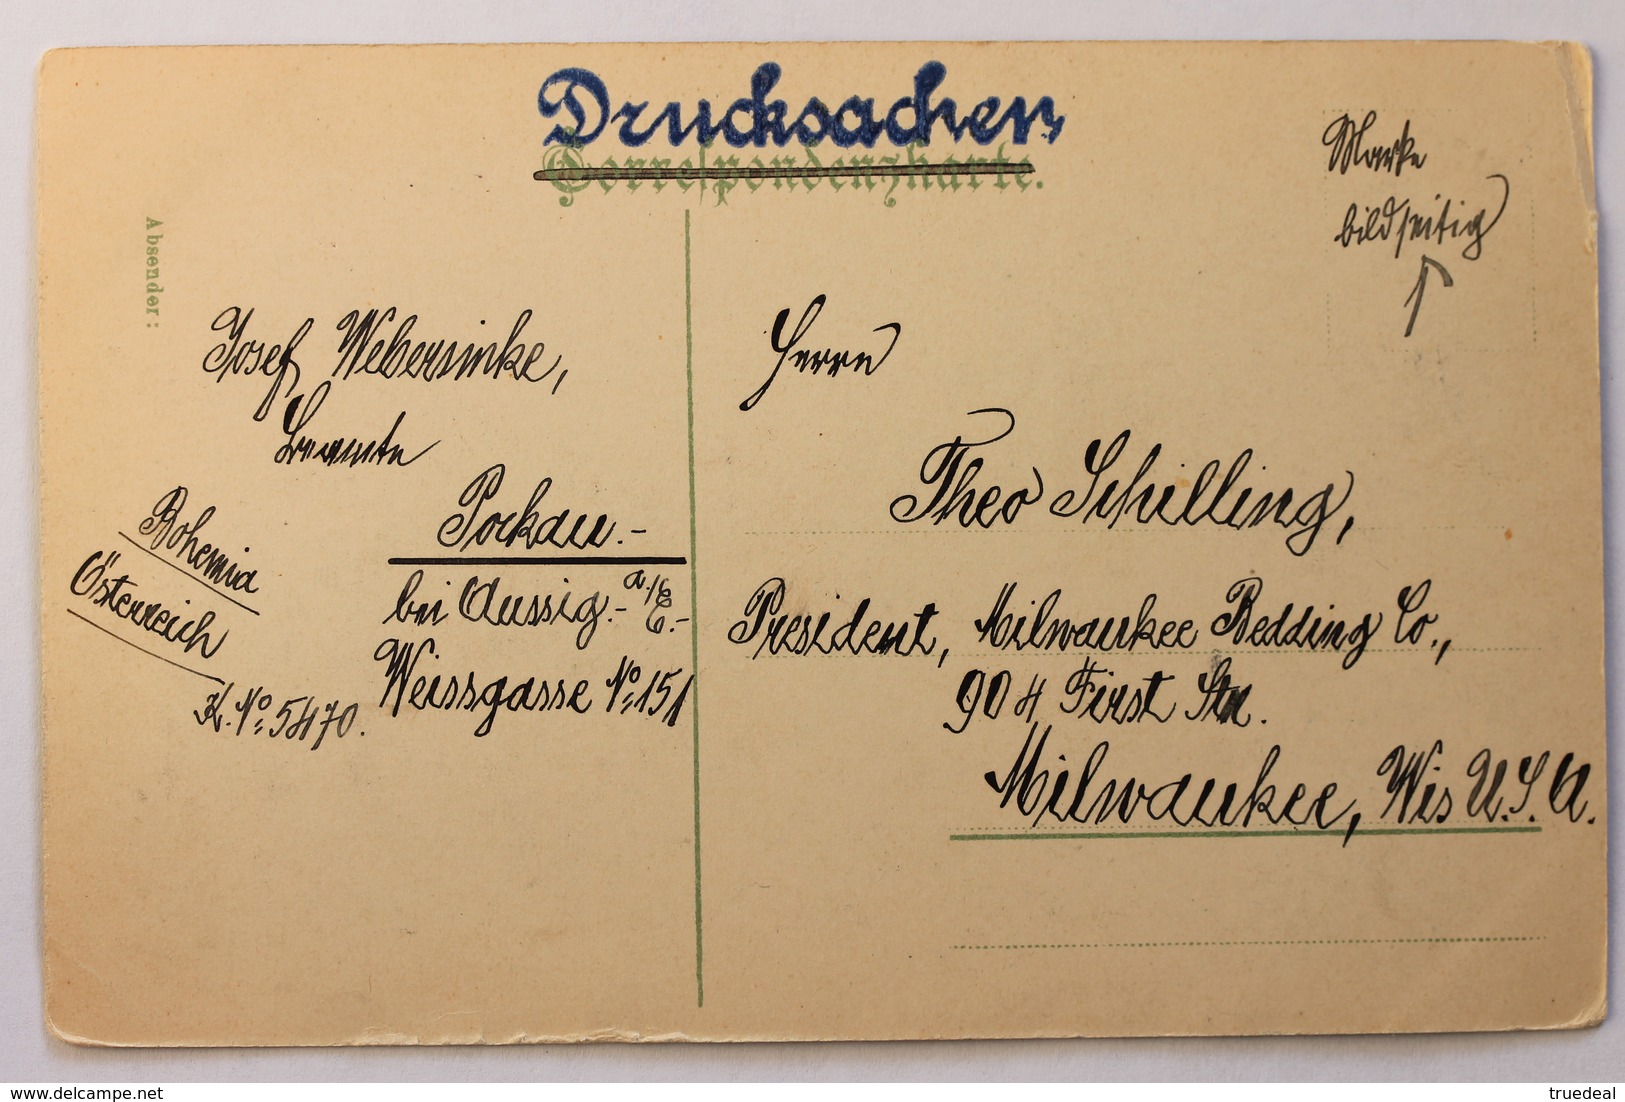 Drucksachen
Correspondenzkarte.
Marke
bildseitig
Absender:
Josef Webersinke,
Beamte
Pockau.-
bei Aussig.- a./E.-
Weissgasse No. 151
Bohemia
Österreich
K. No. 5470.
Herrn
Theo Schilling,
President, Milwaukee Bedding Co.,
904 First Str.
Milwaukee, Wis U.S.A.
delcampe.net
truedeal